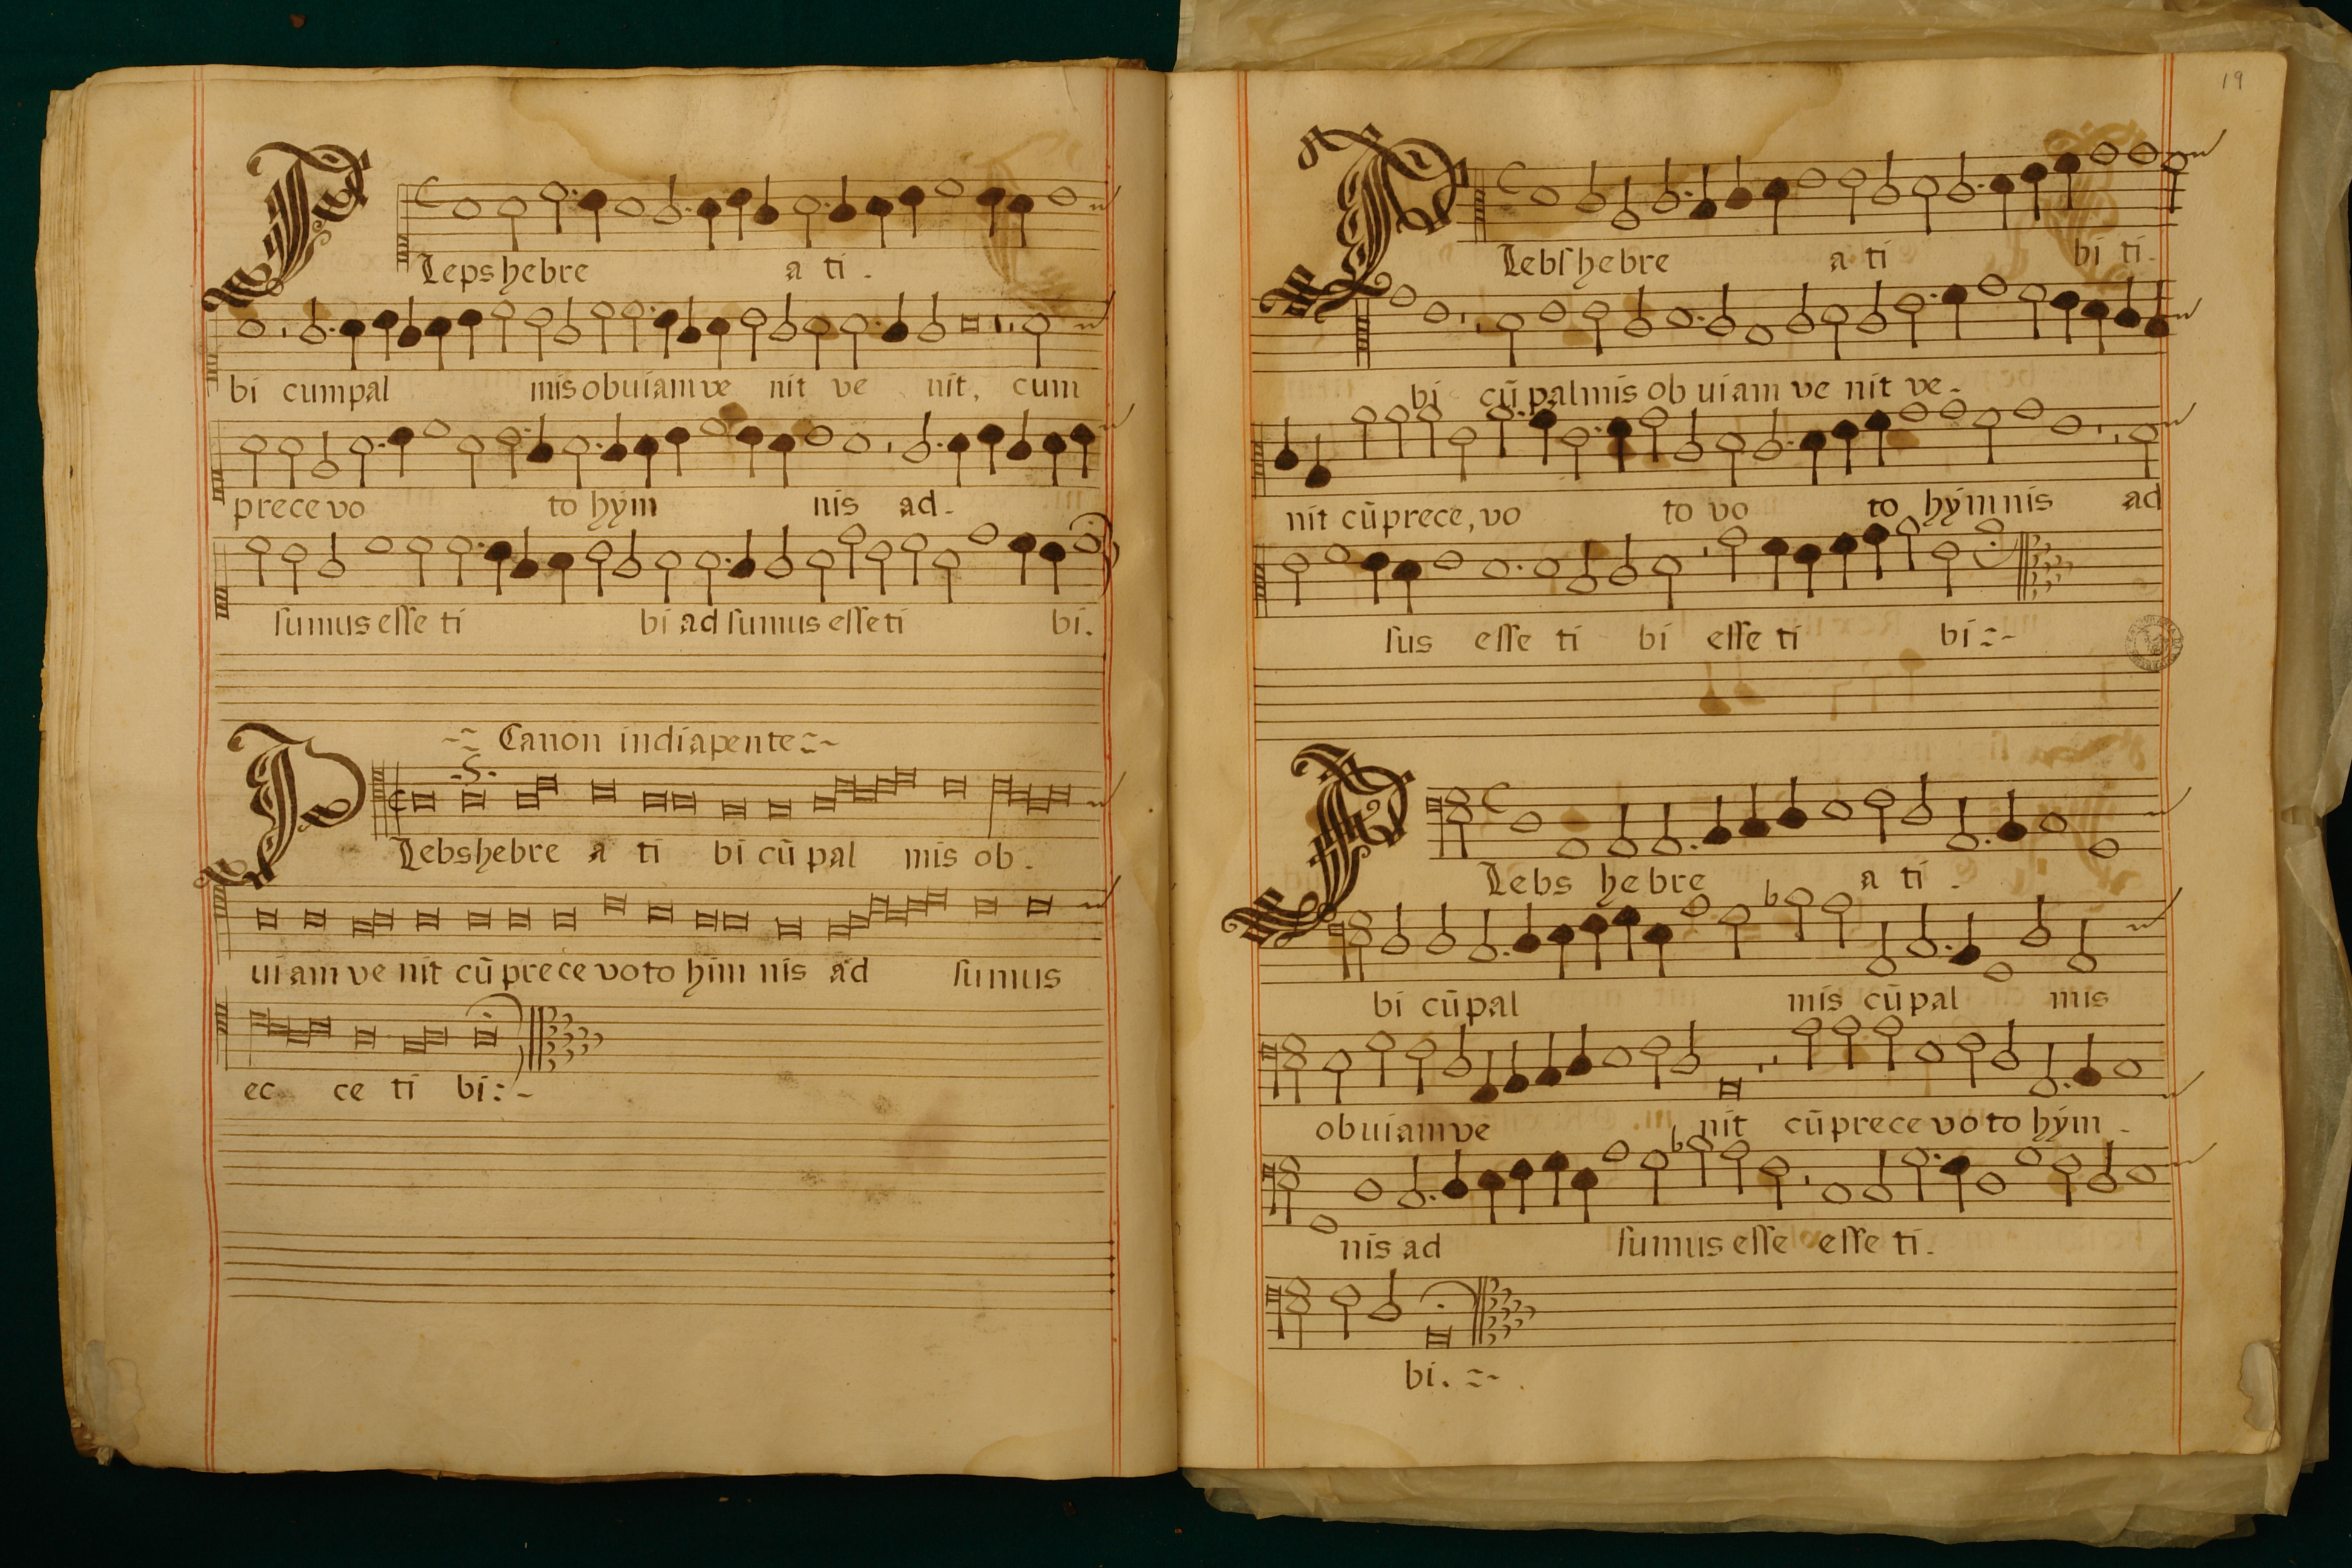 Plepshebre a ti.
bi cumpal mis obuiam ve nit ve nit, cum
prece vo to hym nis ad.
sumus esse ti bi ad sumus esse ti bi.
Canon in diapente
.S.
Plebshebre a ti bi cū pal mis ob.
uiam ve nit cū prece voto him nis ad sumus
ec ce ti bi:-
19
Plebshebre a ti bi ti.
bi cū palmis ob uiam ve nit ve.
nit cū prece, vo to vo to hymnis ad
sus esse ti bi esse ti bi:-
Plebs hebre a ti.
bi cū pal mis cū pal mis
obuiam ve nit cū prece voto hym.
nis ad sumus esse esse ti.
bi.